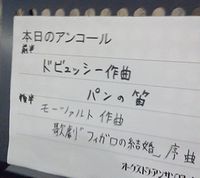 本日のアンコール
前半
ドビュッシー作曲
パンの笛
後半
モーツァルト作曲
歌劇「フィガロの結婚」序曲
オーケストラアンサンブル